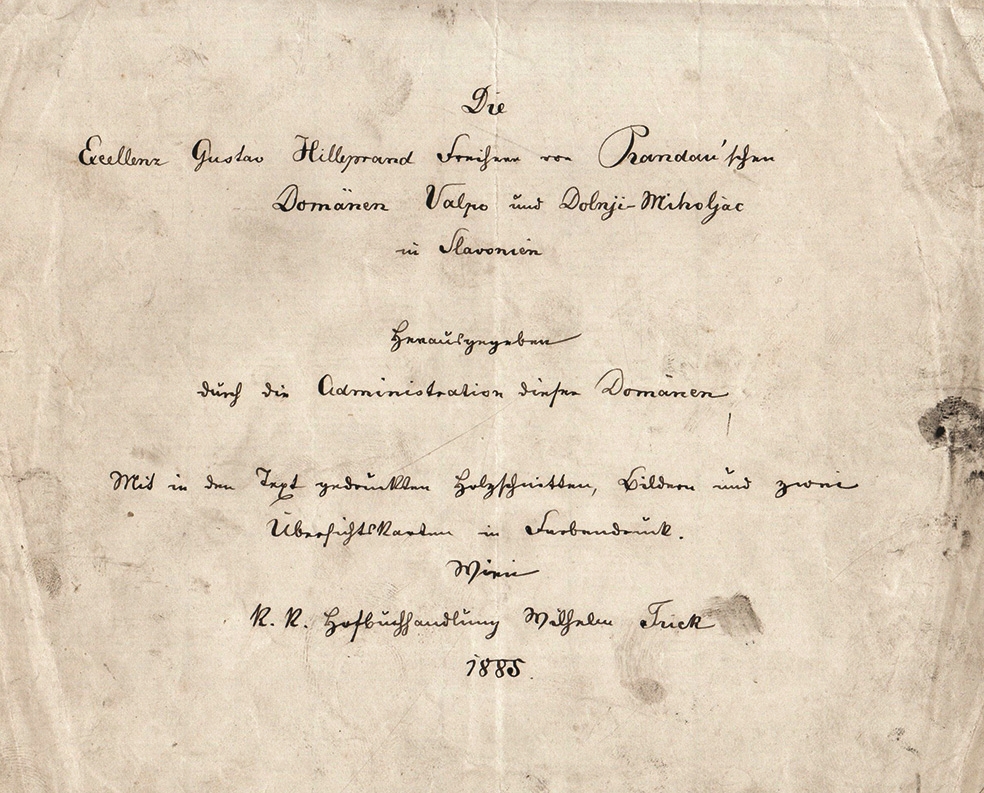 Die
Excellenz Gustav Hilleprand Freiherr von Prandau'schen
Domänen Valpo und Dolnji-Miholjac
in Slavonien
Herausgegeben
durch die Administration dieser Domänen
Mit in den Text gedruckten Holzschnitten, Bildern und zwei
Übersichtskarten in Farbendruck.
Wien
K. K. Hofbuchhandlung Wilhelm Frick
1885.